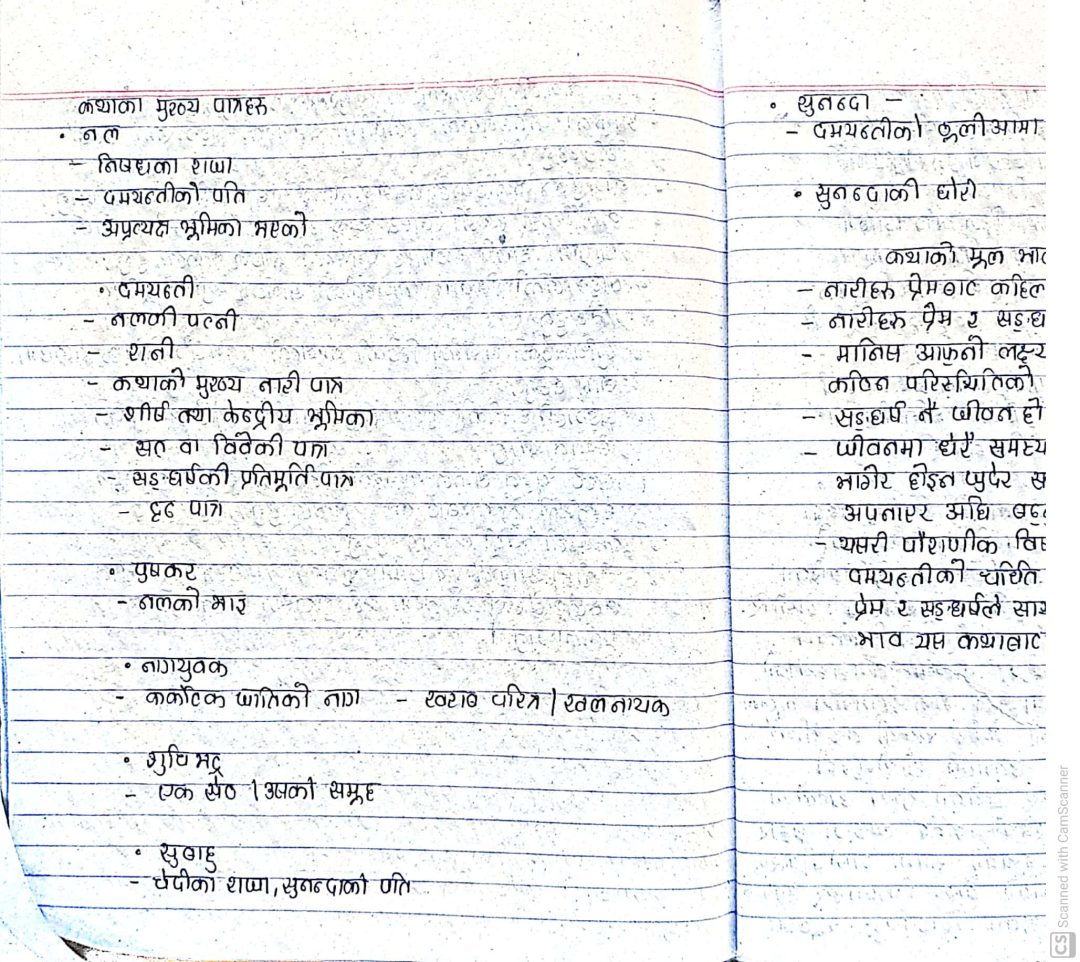 कथाका मुख्य पात्रहरू
• नल
- निषधका राजा
- दमयन्तीको पति
- अप्रत्यक्ष भूमिका भएको
• दमयन्ती
- नलकी पत्नी
- रानी
- कथाको मुख्य नारी पात्र
- शीर्ष तथा केन्द्रीय भूमिका
- सत् वा विवेकी पात्र
- सङ्घर्षकी प्रतिमूर्ति पात्र
- दृढ पात्र
• पुष्कर
- नलको भाइ
• नागयुवक
- कर्कोटक जातिको नाग - खराब चरित्र / खलनायक
• शुचिभद्र
- एक सेठ / उसको समूह
• सुबाहु
- चेदीका राजा, सुनन्दाको पति
• सुनन्दा -
- दमयन्तीको ठूलीआमा
• सुनन्दाकी छोरी
कथाको मूल भाव
- नारीहरू प्रेमबाट कहिल
- नारीहरू प्रेम र सङ्घ
- मानिस आफ्नो लक्ष्य
कठिन परिस्थितिको
- सङ्घर्ष नै जीवन हो
- जीवनमा धेरै समस्य
भागेर होइन जुधेर स
अपनाएर अघि बढ्
- यसरी पौराणीक विष
दमयन्तीको चरित्र
प्रेम र सङ्घर्षले सा
भाव यस कथाबाट
CS Scanned with CamScanner